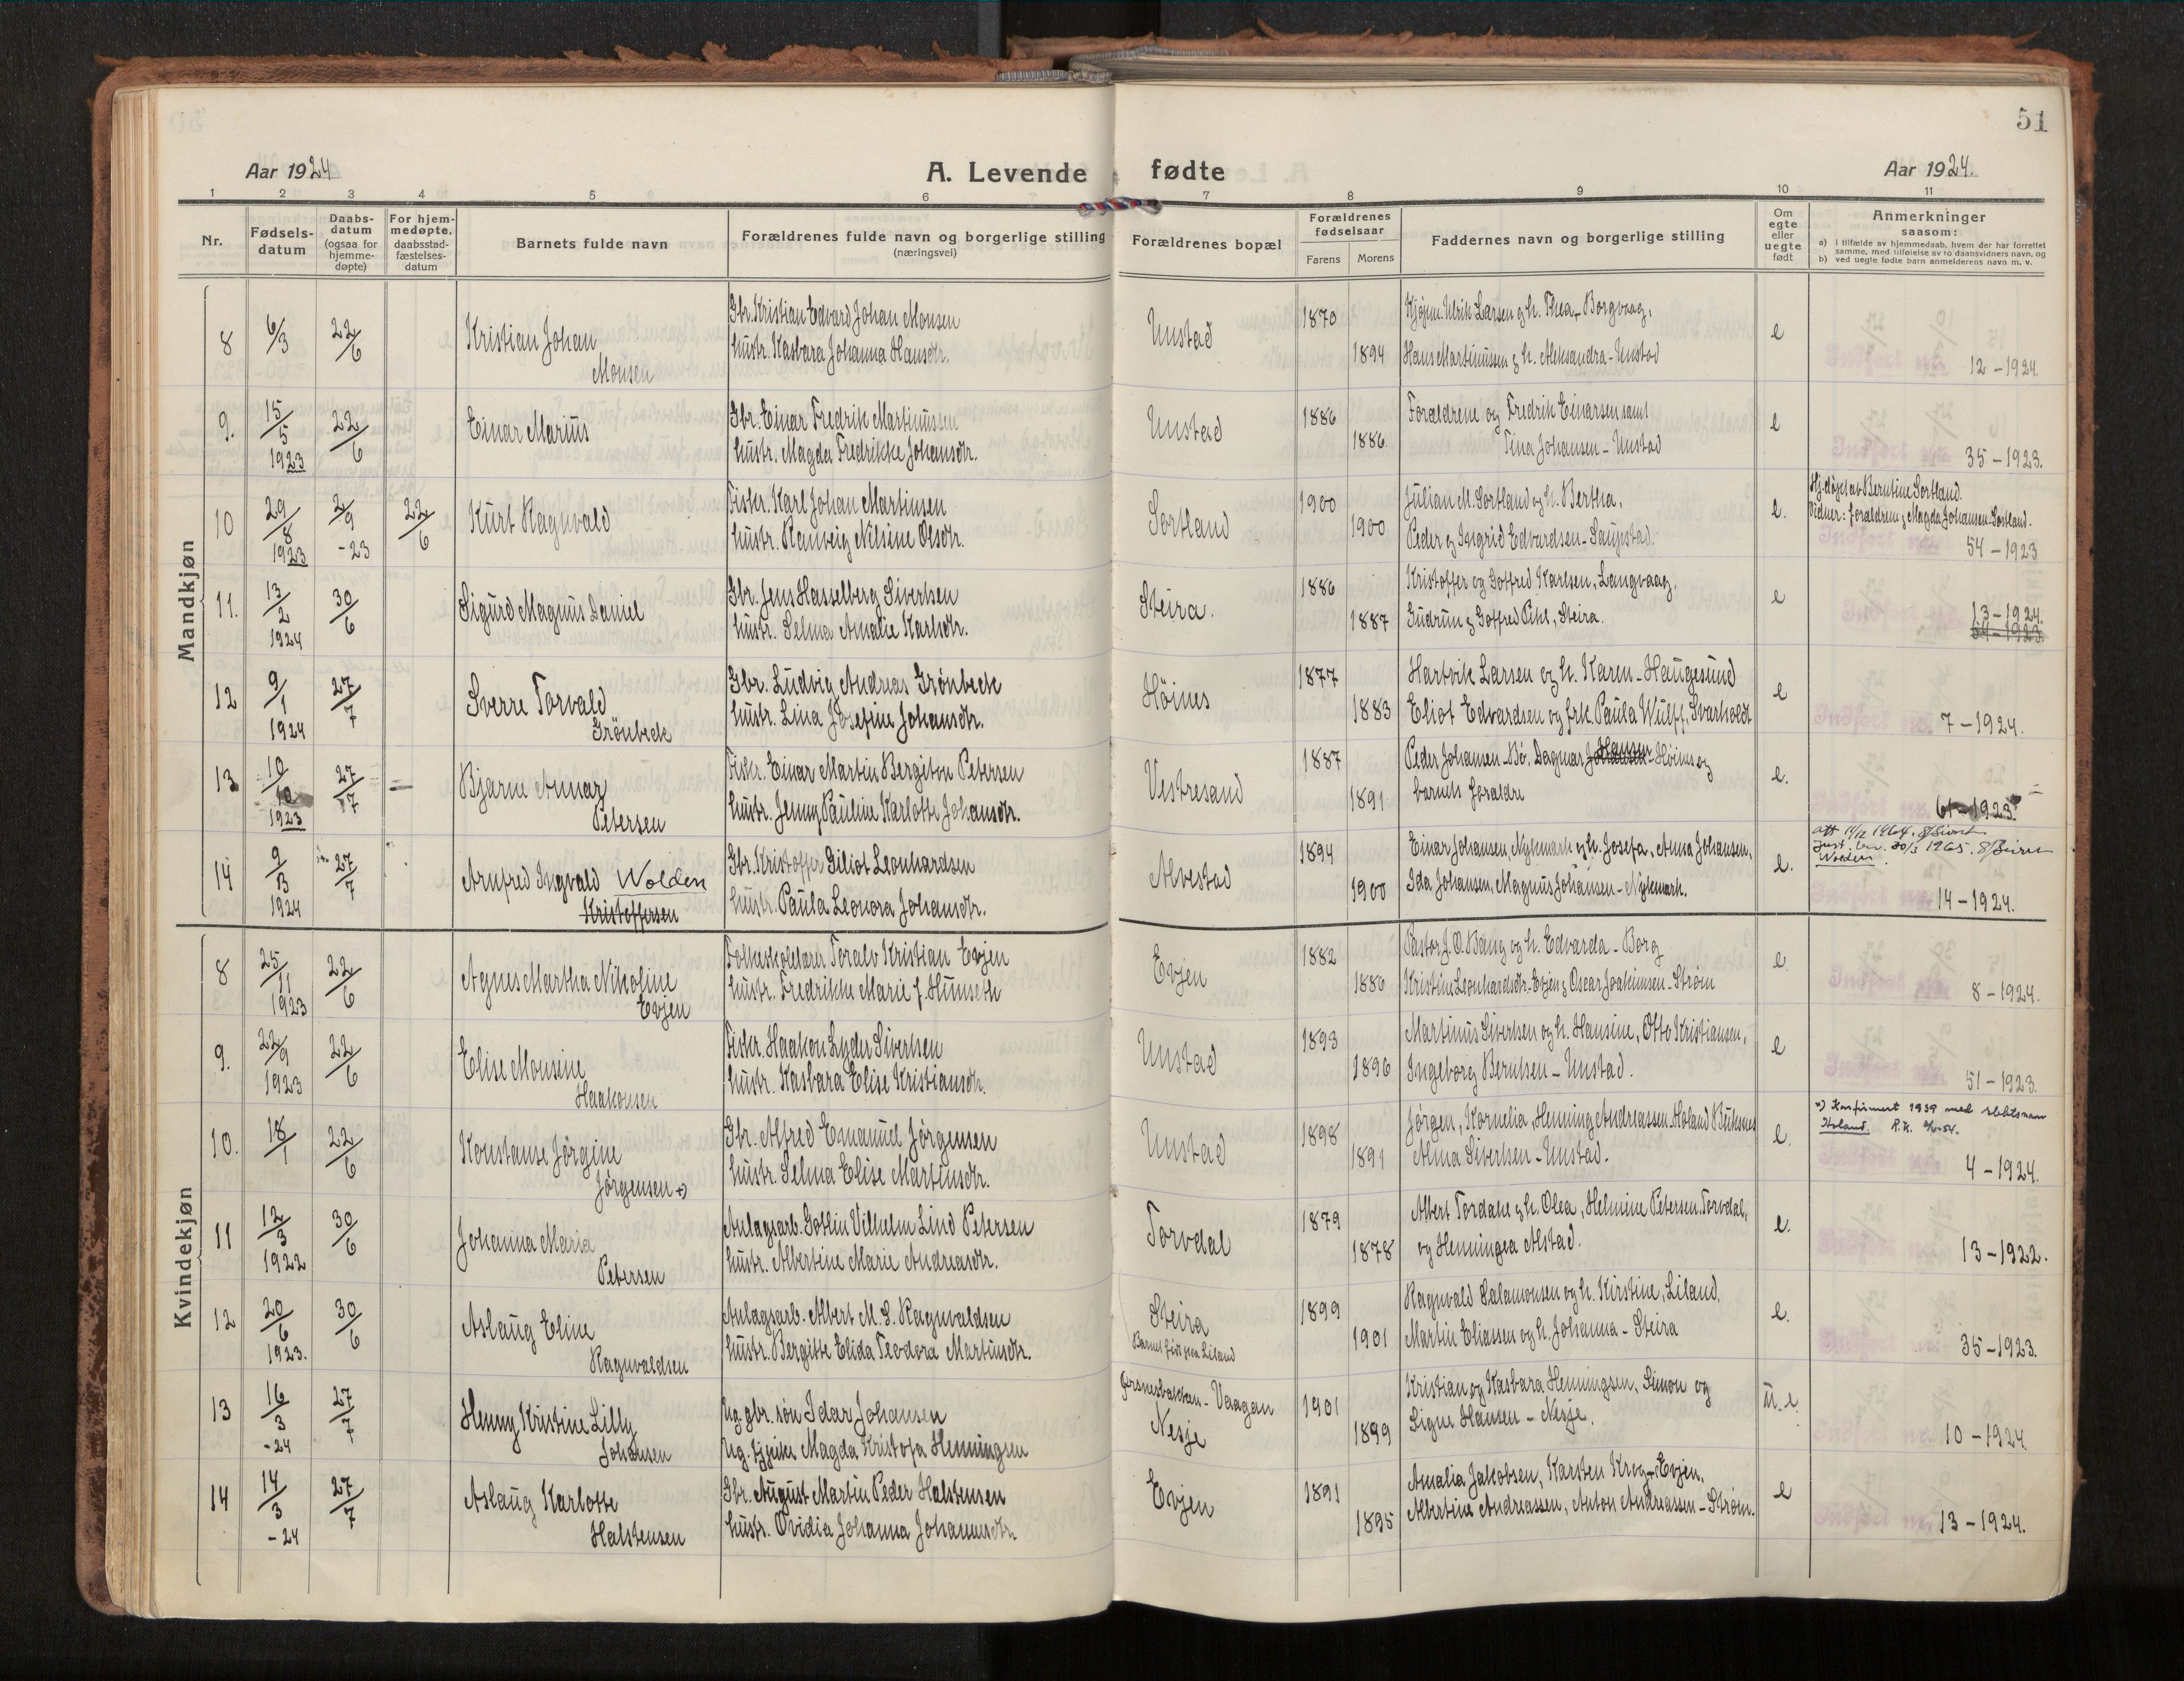 51
Aar 1924 A. Levende fødte Aar 1924.
1 2 3 4 5 6 7 8 9 10 11
Nr. Fødselsdatum Daabsdatum (ogsaa for hjemmedøpte) For hjemmedøpte, daabsstadfæstelsesdatum Barnets fulde navn Forældrenes fulde navn og borgerlige stilling (næringsvei) Forældrenes bopæl Forældrenes fødselsaar Farens Morens Faddernes navn og borgerlige stilling Om egte eller uegte født Anmerkninger saasom:
a) i tilfælde av hjemmedaab, hvem der har forrettet samme, med tilføielse av to daabsvidners navn, og
b) ved uegte fødte barn anmelderens navn m. v.
Mandkjøn
8 6/3 22/6 Kristian Johan Monsen
Gbr. Kristian Edvard Johan Monsen
hustr. Kasbara Johanna Hansdtr.
Unstad 1870 1894
Kjøpm. Ulrik Larsen og h. Thea, Borgvaag,
Hans Martinussen og h. Aleksandra - Unstad
e 12 - 1924.
9. 15/5 1923 22/6 Einar Marius
Gbr. Einar Fredrik Martinussen
hustr. Magda Fredrikke Johansdtr.
Unstad 1886 1886.
Forældrene og Fredrik Einarsen samt
Tina Johansen - Unstad
e 35 - 1923.
10 29/8 1923 2/9 - 23 22/6 Kurt Ragnvald
Fisker. Karl Johan Martinsen
hustr. Ranveig Nelsine Olsdtr.
Sortland 1900 1900
Julian M. Sortland og h. Bertha,
Peder og Ingrid Edvardsen - Saupstad.
e. Hj.døpt av Berntine Sortland.
Vidner: forældrene og Magda Johansen - Sortland.
54 - 1923
11. 13/2 1924 30/6 Sigurd Magnus Daniel
Gbr. Jens Hasselberg Sivertsen
hustr. Selma Amalie Karlsdtr.
Steira. 1886 1887
Kristoffer og Goffred Karlsen, Langvaag,
Gudrun og Goffred Pihl, Steira.
e 13 - 1924.
54 - 1923.
12 9/1 1924 27/7 Sverre Torvald Grönbeck
Gbr. Ludvig Andreas Grönbeck
hustr. Lina Josefine Johansdtr.
Höines 1877 1883
Hartvik Larsen og h. Karen - Haugesund
Eliot Edvardsen og frk. Paula Wulff, Svarholdt
e 7 - 1924.
13 10/10 1923 27/7 - Bjarne Annar Petersen
Fiskr. Einar Martin Bergiton Petersen
hustr. Jenny Pauline Karlotte Johansdtr.
Vestresand 1887 1891
Peder Johansen - Bö. Dagmar Hansen - Höines og
barnets forældre
e. 61 - 1923.
14 9/3 1924 27/7 Arnfred Ingvald Wolden
Kristoffersen
Gbr. Kristoffer Giliot Leonhardsen
hustr. Paula Leonora Johansdtr.
Alvestad 1894 1900
Einar Johansen, Nykmark og h. Josefa, Anna Johansen,
Ida Johansen, Magnus Johansen - Nykmark.
e. Wolden.
14 - 1924.
Kvindekjøn
8 25/11 1923 22/6 Agnes Martha Nikoline Evjen
Folkeskolelærer Toralv Kristian Evjen
hustr. Fredrikke Marie f. Hunseth
Evjen 1882 1886
Pastor J. O. Bang og h. Edvarda - Borg
Kristine Leonhardsdtr. - Evjen og Oscar Joakimsen - Strøm
e. 8 - 1924.
9. 22/9 1923 22/6 Elise Monsine Haakonsen
Fiskr. Haakon Lyder Sivertsen
hustr. Kasbara Elise Kristiansdtr.
Unstad 1893 1896
Martinus Sivertsen og h. Hansine, Otto Kristiansen,
Ingeborg Berntsen - Unstad.
e 51 - 1923.
10. 18/1 22/6 Konstanse Jörgine Jørgensen *)
Gbr. Alfred Emanuel Jörgensen
hustr. Selma Elise Martinsdtr.
Unstad 1898 1891
Jørgen, Kornelia, Henning Andreassen Holand Buksnes
Alma Sivertsen - Unstad.
e. *) Konfirmert 1939 med slektsnavn
Holand. R.K.
4 - 1924.
11 12/3 1922 30/6 Johanna Maria Petersen
Anlagsarb. Gotlin Vilhelm Lind Petersen
hustr. Albertine Marie Andreasdtr.
Torvdal 1879 1878
Albert Tordahl og h. Olea, Helmine Petersen. Torvdal,
og Henningea Alstad.
e. 13 - 1922.
12 20/6 1923. 30/6 Aslaug Eline Ragnvaldsen
Anlagsarb. Albert M. S. Ragnvaldsen
hustr. Bergitte Elida Teodora Martinsdtr.
Steira
Barnet født paa Liland
1899 1901
Ragnvald Salamonsen og h. Kirstine, Liland,
Martin Eliassen og h. Johanna - Steira
e. 35 - 1923.
13 16/3 - 24 27/7 Henny Kristine Lilly Johansen
Ug. gbr. søn Idar Johansen
Ug. pike Magda Kristofa Henningsen
Vaagan
Nesje
1901 1899
Kristian og Kasbara Henningsen, Simon og
Signe Hansen - Nesje.
U.e. 10 - 1924
14 14/3 - 24 27/7 Aslaug Karlotte Halstensen
Gbr. August Martin Peder Halstensen
hustr. Ovidia Johanna Johansdtr.
Evjen 1891 1895
Amalia Jakobsen, Karsten Krog - Evjen.
Albertine Andreassen, Anton Andreassen - Strøm.
e 13 - 1924.